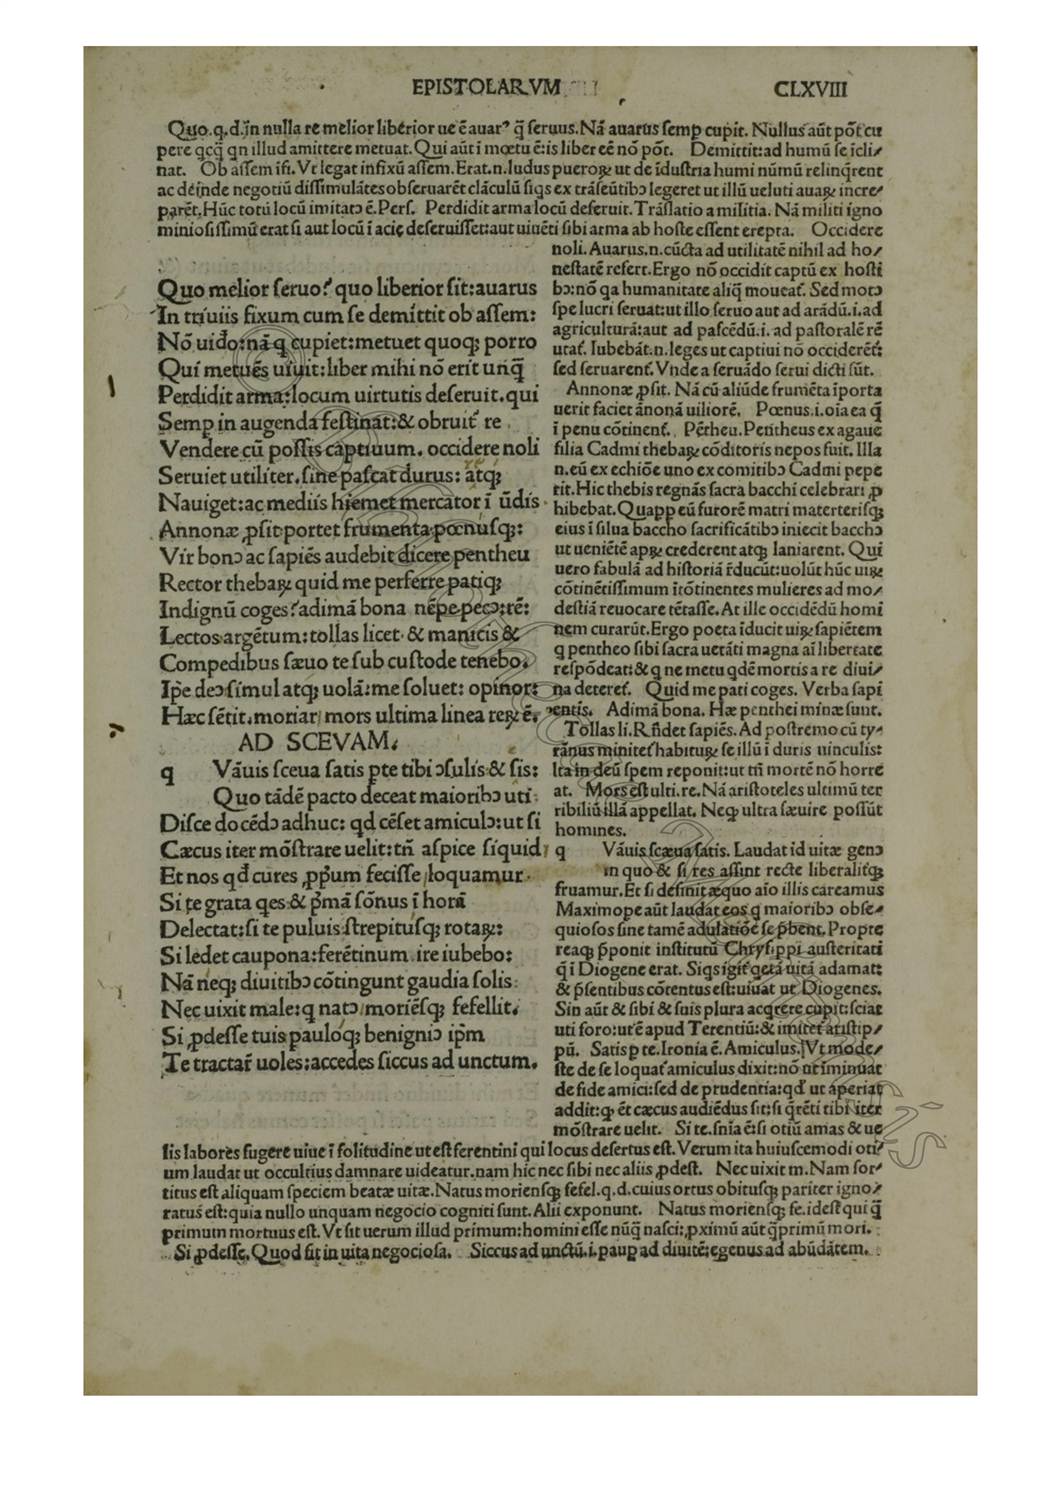 EPISTOLARVM
CLXVIII
Quo.q.d.ĩn nulla re melior liberior ue ē auarꝰ q̃ seruus. Nā auarus semꝑ cupit. Nullus aūt põt cu
pere qcq̃ qn illud amittere metuat. Qui aūt ĩ mœtu ē: is liber eē nō põt. Demittit: ad humū se ĩcli/
nat. Ob assem ifi. Vt legat infixū assem. Erat.n. ludus pueroꝝ ut de ĩdustria humi nūmū relinq̃rent
ac deinde negotiū dissimulātes obseruarēt clāculū siqs ex trāseūtibꝰ legeret ut illū ueluti auaꝝ incre/
parēt. Hūc totū locū imitatꝰ ē. Pers. Perdidit arma locū deseruit. Trāslatio a militia. Nā militi igno
miniosissimū erat si aut locū ĩ acie deseruisset: aut uiuēti sibi arma ab hoste essent erepta. Occidere
noli. Auarus.n. cūcta ad utilitatē nihil ad ho/
nestatē refert. Ergo nō occidit captū ex hosti
bꝰ: nō qa humanitate aliq̃ moueat̃. Sed motꝰ
spe lucri seruat: ut illo seruo aut ad arādū.i. ad
agriculturā: aut ad pascēdū.i. ad pastoralē rē
utat̃. Iubebāt.n. leges ut captiui nō occiderēt̃:
sed seruarent̃. Vnde a seruādo serui dicti sūt.
Annonæ ꝓsit. Nā cū aliūde frumēta ĩporta
uerit faciet ānonā uiliorē. Pœnus.i. oĩa ea q̃
ĩ penu cōtinent̃. Pētheu. Pentheus ex agaue
filia Cadmi thebaꝝ cōditoris nepos fuit. Illa
n. eū ex echiōe uno ex comitibꝰ Cadmi pepe
rit. Hic thebis regnās sacra bacchi celebrari ꝓ
hibebat. Quapp eū furorē matri materterisqꝫ
eius ĩ silua baccho sacrificātibꝰ iniecit bacchꝰ
ut ueniētē apꝝ crederent atqꝫ laniarent. Qui
uero fabulā ad historiā r̃ducūt: uolūt hūc uiꝝ
cōtinētissimum ĩcōtinentes mulieres ad mo/
destiā reuocare tētasse. At ille occidēdū homĩ
nem curarūt. Ergo poeta ĩducit uiꝝ sapiētem
q pentheo sibi sacra uetāti magna aĩ libertate
respōdeat: & q ne metu qdē mortis a re diui/
na deteret̃. Quid me pati coges. Verba sapi
entis. Adimā bona. Hæ penthei minæ sunt.
Tollas li. Rñdet sapiēs. Ad postremo cū ty/
rānus minitet̃ habituꝝ se illū ĩ duris uinculis:
Ita in deū spem reponit: ut tñ mortē nō horre
at. Mors est ulti. re. Nā aristoteles ultimū ter
ribiliū illā appellat. Neqꝫ ultra sæuire possūt
homines.
q Vāuis scæua satis. Laudat id uitæ genꝰ
in quo & si res assint recte liberalit̃qꝫ
fruamur. Et si definit æquo aĩo illis careamus
Maximope aūt laudat eos q maioribꝰ obse/
quiosos sine tamē adulatiōe se p̃bent. Propte
reaqꝫ ꝓponit institutū Chrysippi austeritati
q̃ ĩ Diogene erat. Siqs igit̃ q̃etā uitā adamat:
& p̃sentibus cōtentus est: uiuat ut Diogenes.
Sin aūt & sibi & suis plura acq̃rere cupit: sciat
uti foro: ut ē apud Terentiū: & imitet̃ aristip/
pū. Satis p te. Ironia ē. Amiculus. Vt mode/
ste de se loquat̃ amiculus dixit: nō ut iminuat
de fide amici: sed de prudentia: qđ ut aperiat
addit: qꝫ ēt cæcus audiēdus sit: si q̃rēti tibi iter
mōstrare uelit. Si te. snĩa ē: si otiū amas & ue
lis labores fugere uiue ĩ solitudine ut est ferentini qui locus desertus est. Verum ita huiuscemodi oti/
um laudat ut occultius damnare uideatur. nam hic nec sibi nec aliis ꝓdest. Nec uixit m. Nam sor/
titus est aliquam speciem beatæ uitæ. Natus moriensqꝫ fefel.q.d. cuius ortus obitusqꝫ pariter igno/
ratus est: quia nullo unquam negocio cogniti sunt. Alii exponunt. Natus moriensqꝫ fe. idest qui q̃
primum mortuus est. Vt sit uerum illud primum: homini esse nūq̃ nasci: ꝓximū aūt q̃primū mori.
Si ꝓdesse. Quod sit in uita negociosa. Siccus ad unctū.i. pauꝑ ad diuitē: egenus ad abūdātem.
Quo melior seruo? quo liberior sit: auarus
In triuiis fixum cum se demittit ob assem:
Nō uideo: nā q cupiet: metuet quoqꝫ porro
Qui metuēs uiuit: liber mihi nō erit unq̃
Perdidit arma: locum uirtutis deseruit. qui
Semꝑ in augenda festinat: & obruit̃ re
Vendere cū possis captiuum. occidere noli
Seruiet utiliter. sine pascat durus: atqꝫ
Nauiget: ac mediis hiemet mercator ĩ ūdis
Annonæ ꝓsit portet frumenta pœnusqꝫ:
Vir bonꝰ ac sapiēs audebit dicere pentheu
Rector thebaꝝ quid me perferre patiqꝫ
Indignū coges? adimā bona nēpe pecꝰ: rē:
Lectos argētum: tollas licet & manicis &
Compedibus sæuo te sub custode tenebo.
Ipē deꝰ simul atqꝫ uolā: me soluet: opinor:
Hæc sētit. moriar mors ultima linea reꝝ ē.
AD SCEVAM.
q Vāuis sceua satis p te tibi ꝯsulis: & sis:
Quo tādē pacto deceat maioribꝰ uti
Disce docēdꝰ adhuc: qđ cēset amiculꝰ: ut si
Cæcus iter mōstrare uelit: tñ aspice siquid
Et nos qđ cures ꝓp̃um fecisse loquamur
Si te grata q̃es: & p̃mā sōnus ĩ horā
Delectat: si te puluis strepitusqꝫ rotaꝝ:
Si ledet caupona: ferētinum ire iubebo:
Nā neqꝫ diuitibꝰ cōtingunt gaudia solis
Nec uixit male: q natꝰ moriēsqꝫ fefellit.
Si ꝓdesse tuis pauloqꝫ benigniꝰ ip̃m
Te tractar̃ uoles: accedes siccus ad unctum.